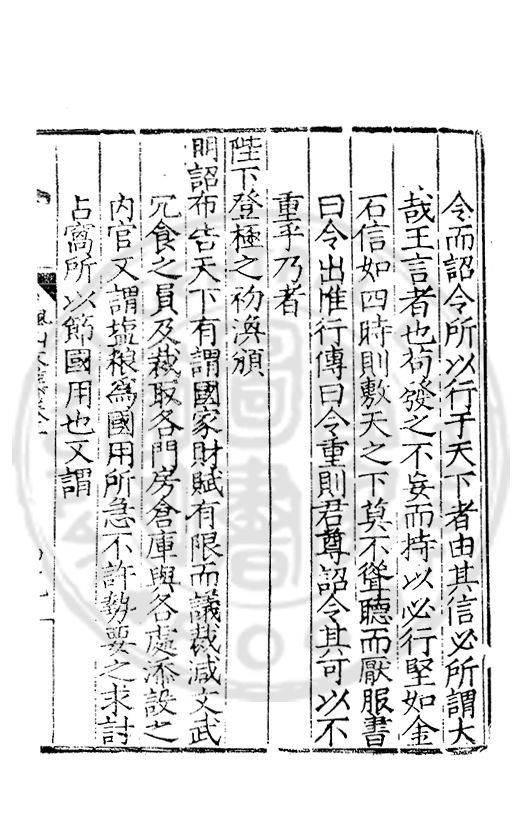 令而詔令所以行于天下者由其信必所謂大
㢤王言者也苟發之不妄而持以必行堅如金
石信如四時則敷天之下莫不聳聽而厭服書
曰令出惟行傳曰令重則君尊詔令其可以不
重乎乃者
陛下登極之初渙頒
明詔布告天下有謂國家財賦有限而議裁減文武
冗食之員及裁取各門房倉庫與各處添設之
內官又謂塩粮爲國用所急不許勢要之求討
占窩所以節國用也又謂